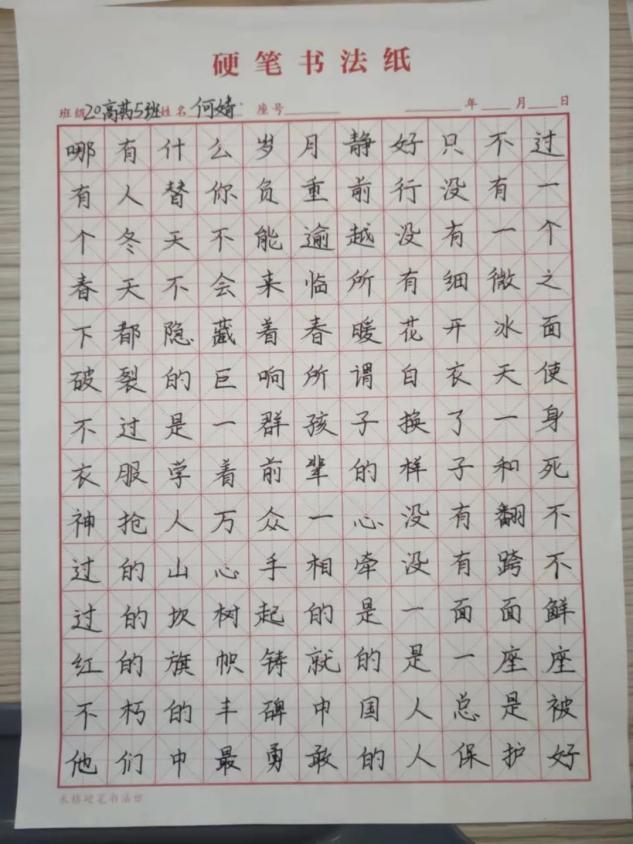 硬笔书法纸
班级20高药5班 姓名 何婍 座号 年 月 日
哪有什么岁月静好只不过
有人替你负重前行没有一
个冬天不能逾越没有一个
春天不会来临所有细微之
下都隐藏着春暖花开冰面
破裂的巨响所谓白衣天使
不过是一群孩子换了一身
衣服学着前辈的样子和死
神抢人万众一心没有翻不
过的山心手相牵没有跨不
过的坎树起的是一面面鲜
红的旗帜铸就的是一座座
不朽的丰碑中国人总是被
他们中最勇敢的人保护好